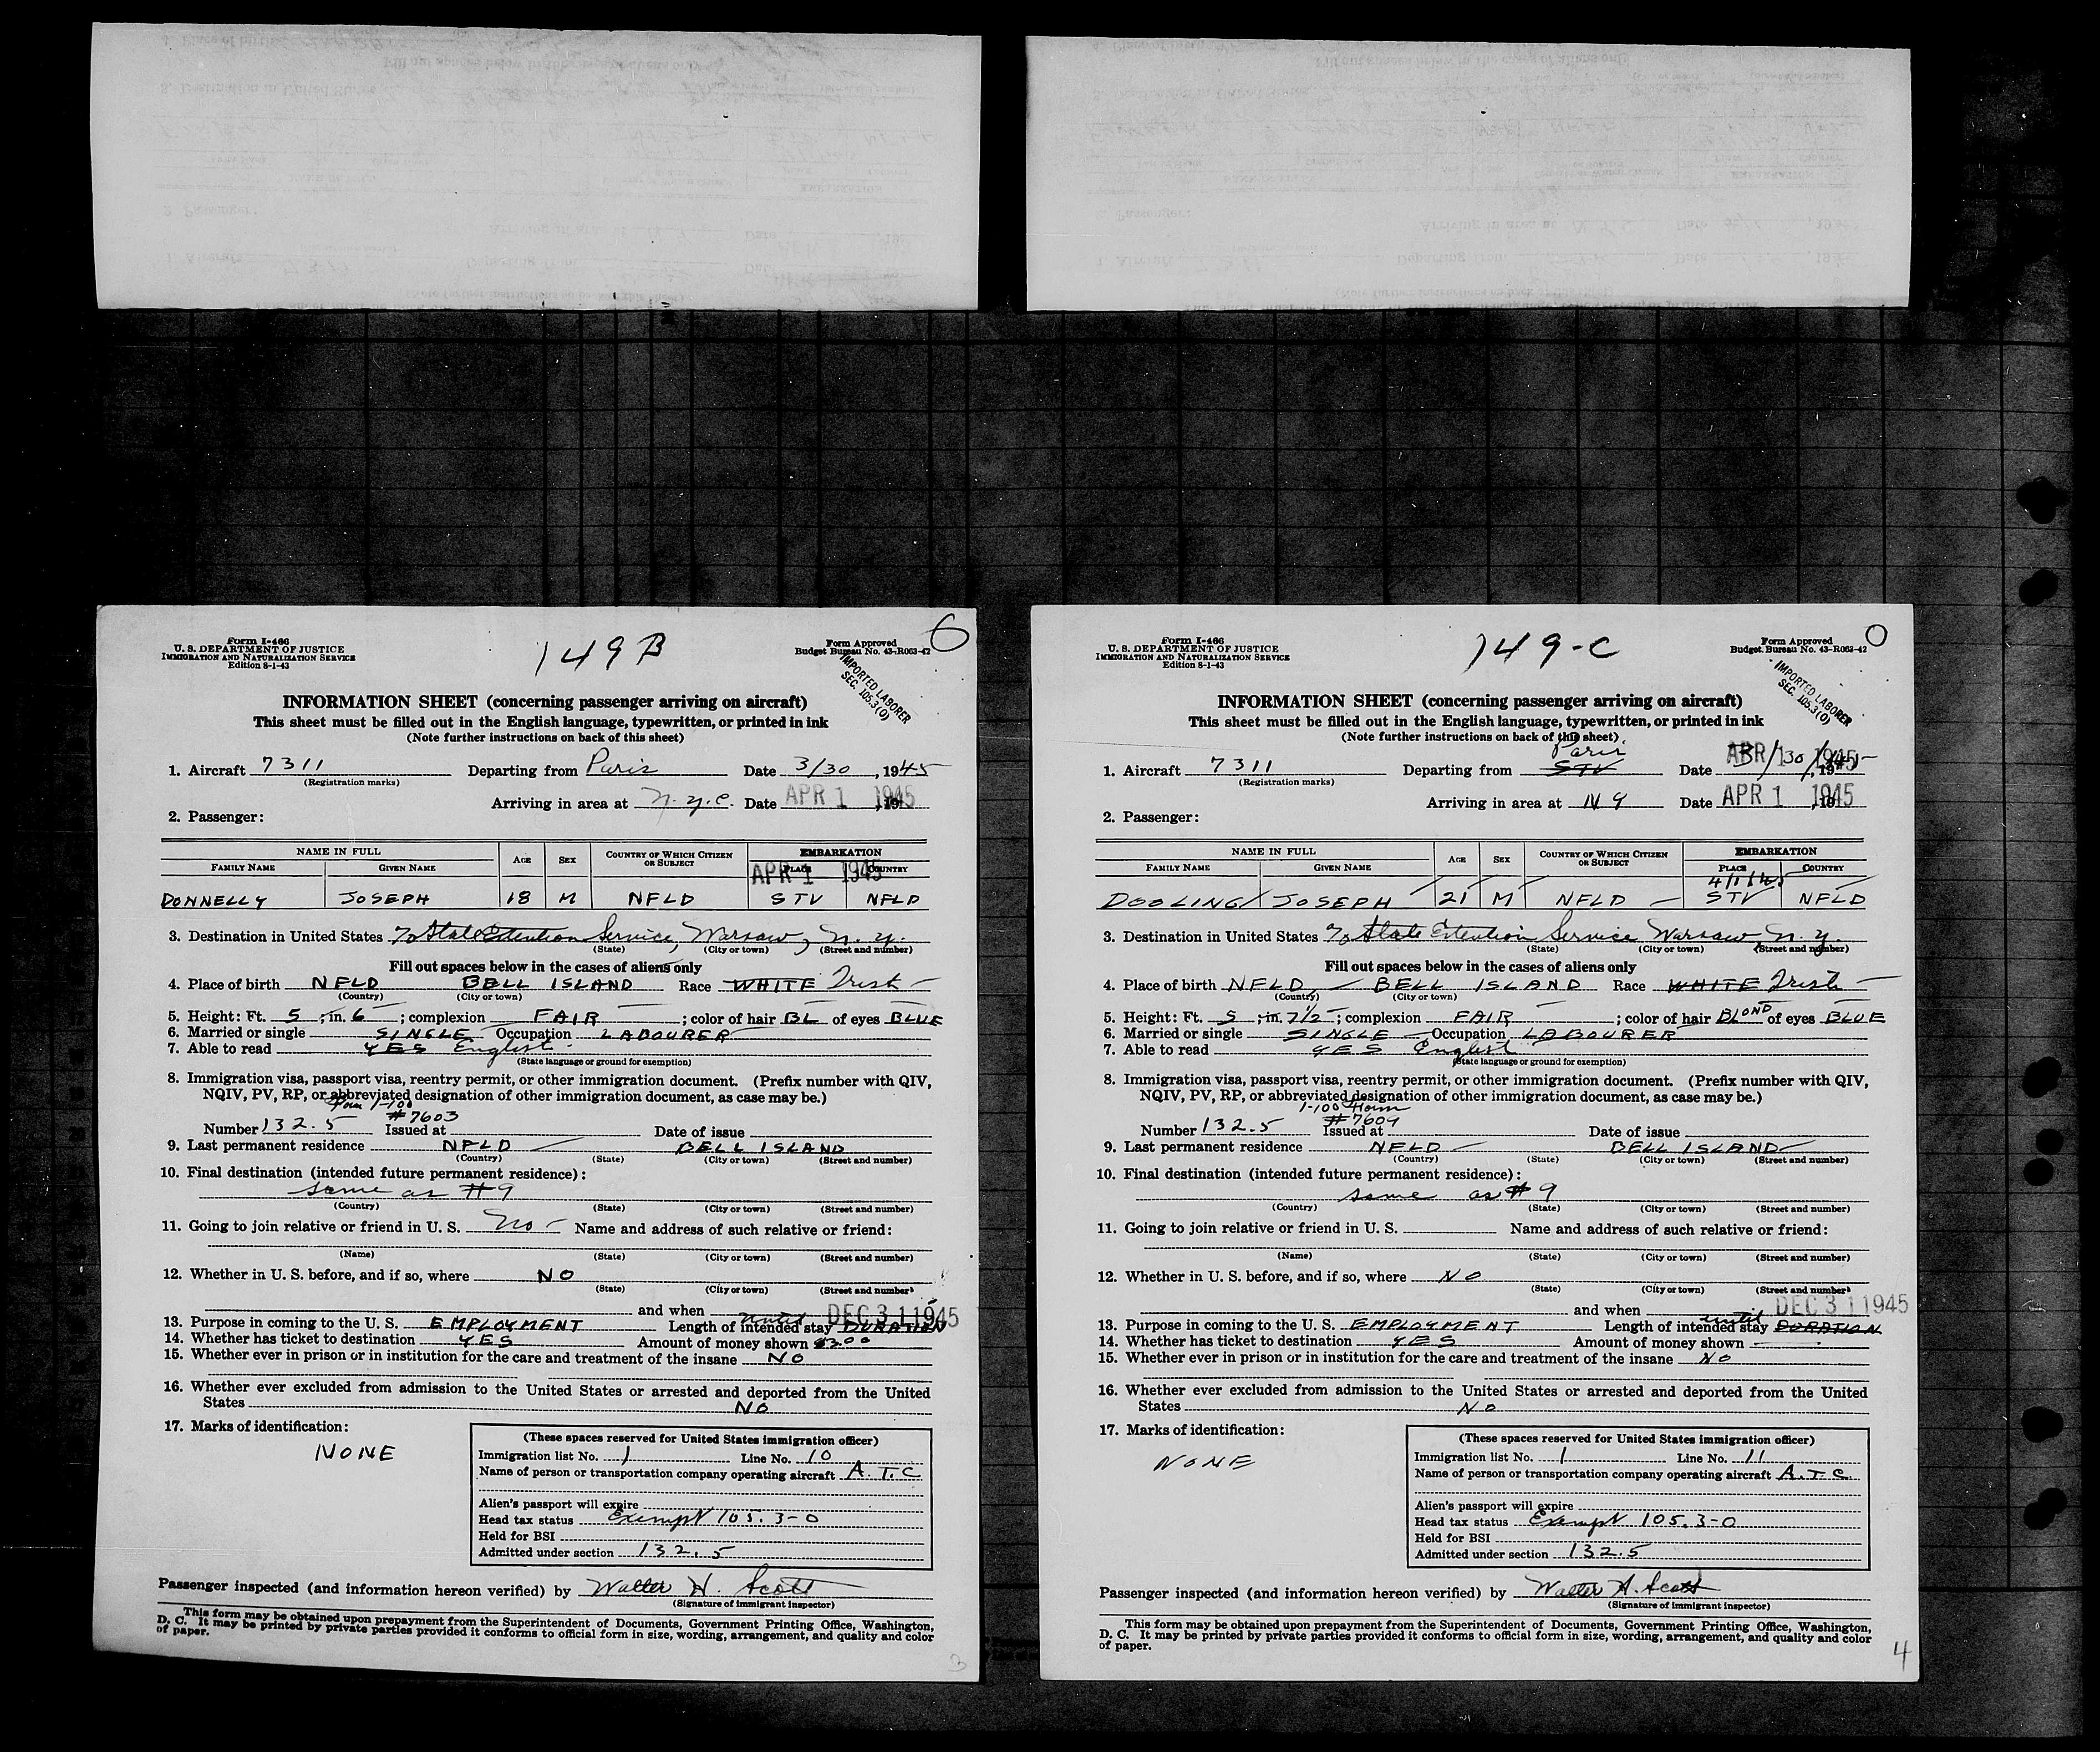 Form I-466
U. S. DEPARTMENT OF JUSTICE
IMMIGRATION AND NATURALIZATION SERVICE
Edition 8-1-43
149 B
Form Approved
Budget Bureau No. 43-R063-42
6
IMPORTED LABORER
SEC. 105.3(0)
INFORMATION SHEET (concerning passenger arriving on aircraft)
This sheet must be filled out in the English language, typewritten, or printed in ink
(Note further instructions on back of this sheet)
1. Aircraft 7311 Departing from Paris Date 3/30, 1945
(Registration marks)
Arriving in area at N.Y.C. Date APR 1 1945, 19
2. Passenger:
NAME IN FULL AGE SEX COUNTRY OF WHICH CITIZEN OR SUBJECT EMBARKATION
FAMILY NAME GIVEN NAME PLACE COUNTRY
APR 1 1945
DONNELLY JOSEPH 18 M NFLD STV NFLD
3. Destination in United States % State Extention Service, Warsaw, N.Y.
(State) (City or town) (Street and number)
Fill out spaces below in the cases of aliens only
4. Place of birth NFLD BELL ISLAND Race WHITE Irish
(Country) (City or town)
5. Height: Ft. 5; in. 6; complexion FAIR; color of hair BL of eyes BLUE
6. Married or single SINGLE Occupation LABOURER
7. Able to read YES English
(State language or ground for exemption)
8. Immigration visa, passport visa, reentry permit, or other immigration document. (Prefix number with QIV,
NQIV, PV, RP, or abbreviated designation of other immigration document, as case may be.)
Form 1-100
#7603
Number 132.5 Issued at Date of issue
9. Last permanent residence NFLD BELL ISLAND
(Country) (State) (City or town) (Street and number)
10. Final destination (intended future permanent residence):
same as #9
(Country) (State) (City or town) (Street and number)
11. Going to join relative or friend in U. S. No Name and address of such relative or friend:
(Name) (State) (City or town) (Street and number)
12. Whether in U. S. before, and if so, where NO
(State) (City or town) (Street and number)
and when
until DEC 31 1945
13. Purpose in coming to the U. S. EMPLOYMENT Length of intended stay DURATION
14. Whether has ticket to destination YES Amount of money shown $3.00
15. Whether ever in prison or in institution for the care and treatment of the insane NO
16. Whether ever excluded from admission to the United States or arrested and deported from the United
States NO
17. Marks of identification:
NONE
(These spaces reserved for United States immigration officer)
Immigration list No. 1 Line No. 10
Name of person or transportation company operating aircraft A.T.C
Alien's passport will expire
Head tax status Exempt 105.3-0
Held for BSI
Admitted under section 132.5
Passenger inspected (and information hereon verified) by Walter H. Scott
(Signature of immigrant inspector)
This form may be obtained upon prepayment from the Superintendent of Documents, Government Printing Office, Washington,
D. C. It may be printed by private parties provided it conforms to official form in size, wording, arrangement, and quality and color
of paper.
3
Form I-466
U. S. DEPARTMENT OF JUSTICE
IMMIGRATION AND NATURALIZATION SERVICE
Edition 8-1-43
149-C
Form Approved
Budget Bureau No. 43-R063-42
O
IMPORTED LABORER
SEC. 105.3(0)
INFORMATION SHEET (concerning passenger arriving on aircraft)
This sheet must be filled out in the English language, typewritten, or printed in ink
(Note further instructions on back of this sheet)
Paris
1. Aircraft 7311 Departing from STV Date 3/30/, 1945
(Registration marks)
Arriving in area at NY Date APR 1 1945, 19
2. Passenger:
NAME IN FULL AGE SEX COUNTRY OF WHICH CITIZEN OR SUBJECT EMBARKATION
FAMILY NAME GIVEN NAME PLACE COUNTRY
4/1/45
DOOLING JOSEPH 21 M NFLD STV NFLD
3. Destination in United States % State Extention Service Warsaw, N.Y.
(State) (City or town) (Street and number)
Fill out spaces below in the cases of aliens only
4. Place of birth NFLD, BELL ISLAND Race WHITE Irish
(Country) (City or town)
5. Height: Ft. 5; in. 7 1/2; complexion FAIR; color of hair BLOND of eyes BLUE
6. Married or single SINGLE Occupation LABOURER
7. Able to read YES English
(State language or ground for exemption)
8. Immigration visa, passport visa, reentry permit, or other immigration document. (Prefix number with QIV,
NQIV, PV, RP, or abbreviated designation of other immigration document, as case may be.)
1-100 Form
#7609
Number 132.5 Issued at Date of issue
9. Last permanent residence NFLD BELL ISLAND
(Country) (State) (City or town) (Street and number)
10. Final destination (intended future permanent residence):
same as #9
(Country) (State) (City or town) (Street and number)
11. Going to join relative or friend in U. S. Name and address of such relative or friend:
(Name) (State) (City or town) (Street and number)
12. Whether in U. S. before, and if so, where NO
(State) (City or town) (Street and number)
and when
until DEC 31 1945
13. Purpose in coming to the U. S. EMPLOYMENT Length of intended stay DURATION
14. Whether has ticket to destination YES Amount of money shown
15. Whether ever in prison or in institution for the care and treatment of the insane NO
16. Whether ever excluded from admission to the United States or arrested and deported from the United
States NO
17. Marks of identification:
NONE
(These spaces reserved for United States immigration officer)
Immigration list No. 1 Line No. 11
Name of person or transportation company operating aircraft A.T.C.
Alien's passport will expire
Head tax status Exempt 105.3-0
Held for BSI
Admitted under section 132.5
Passenger inspected (and information hereon verified) by Walter H. Scott
(Signature of immigrant inspector)
This form may be obtained upon prepayment from the Superintendent of Documents, Government Printing Office, Washington,
D. C. It may be printed by private parties provided it conforms to official form in size, wording, arrangement, and quality and color
of paper.
4